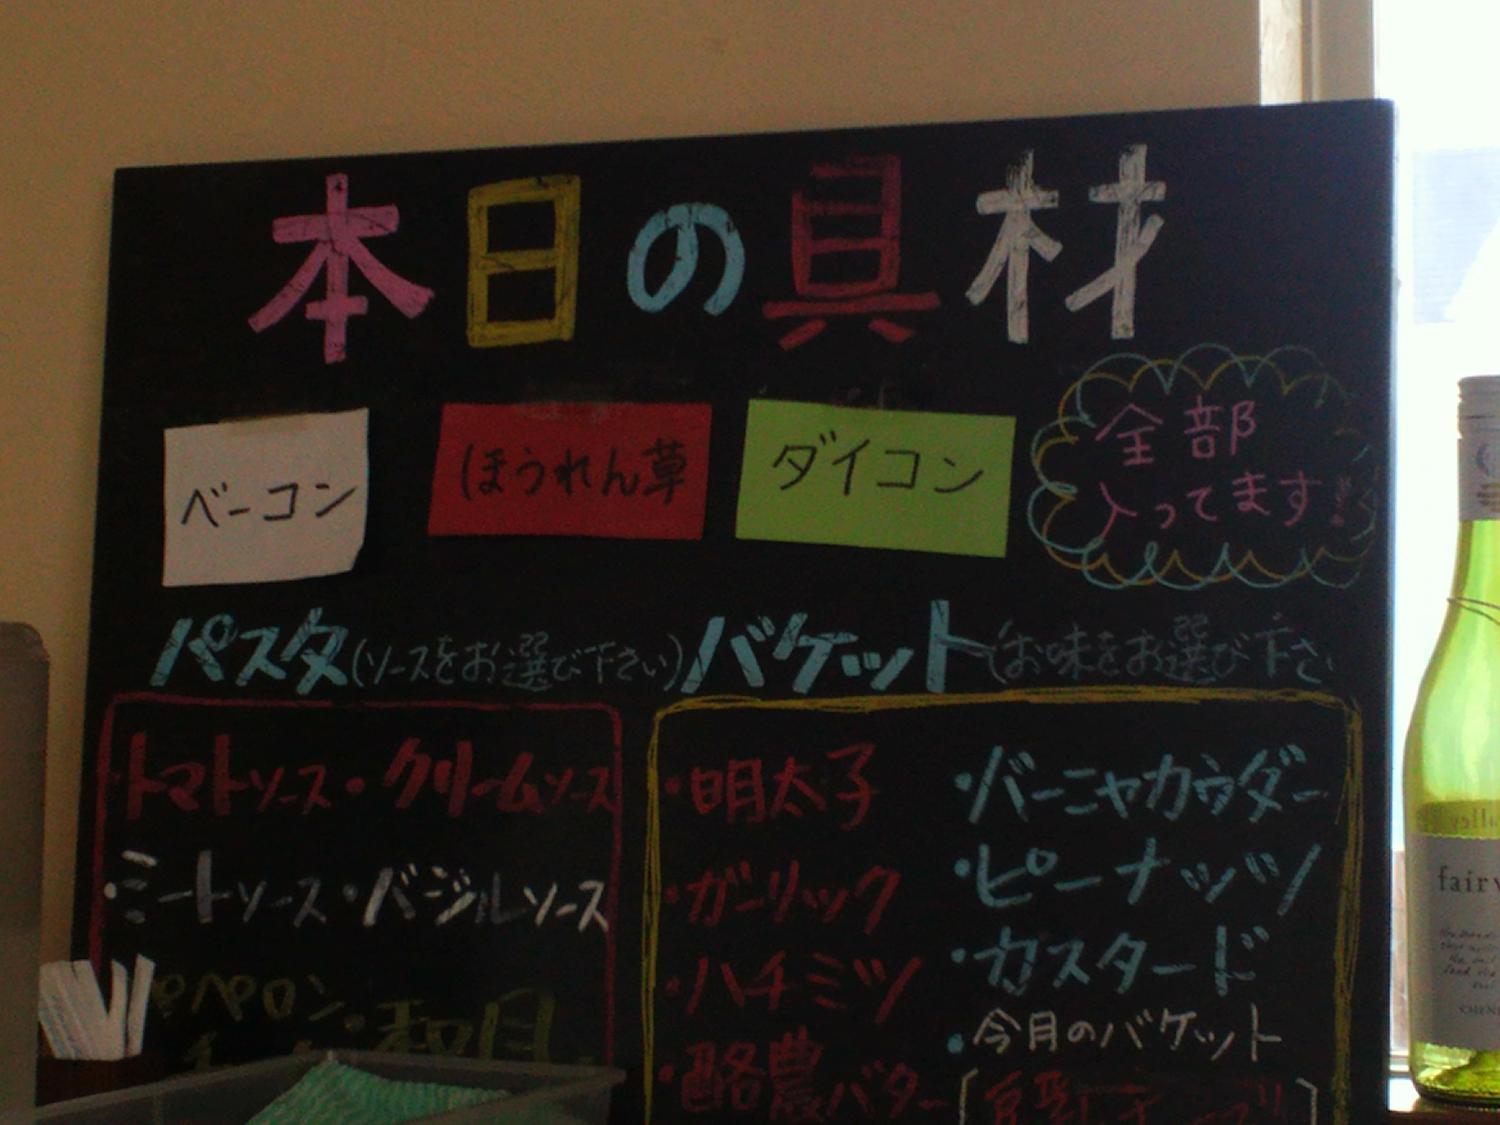 本日の具材
ベーコン
ほうれん草
ダイコン
全部
入ってます!!
パスタ(ソースをお選び下さい)
トマトソース・クリームソース
・ミートソース・バジルソース
ペペロン
・和風
バケット(お味をお選び下さ
・明太子
・ガーリック
・ハチミツ
・酪農バター
・バーニャカウダー
・ピーナッツ
・カスタード
・今月のバケット
fair